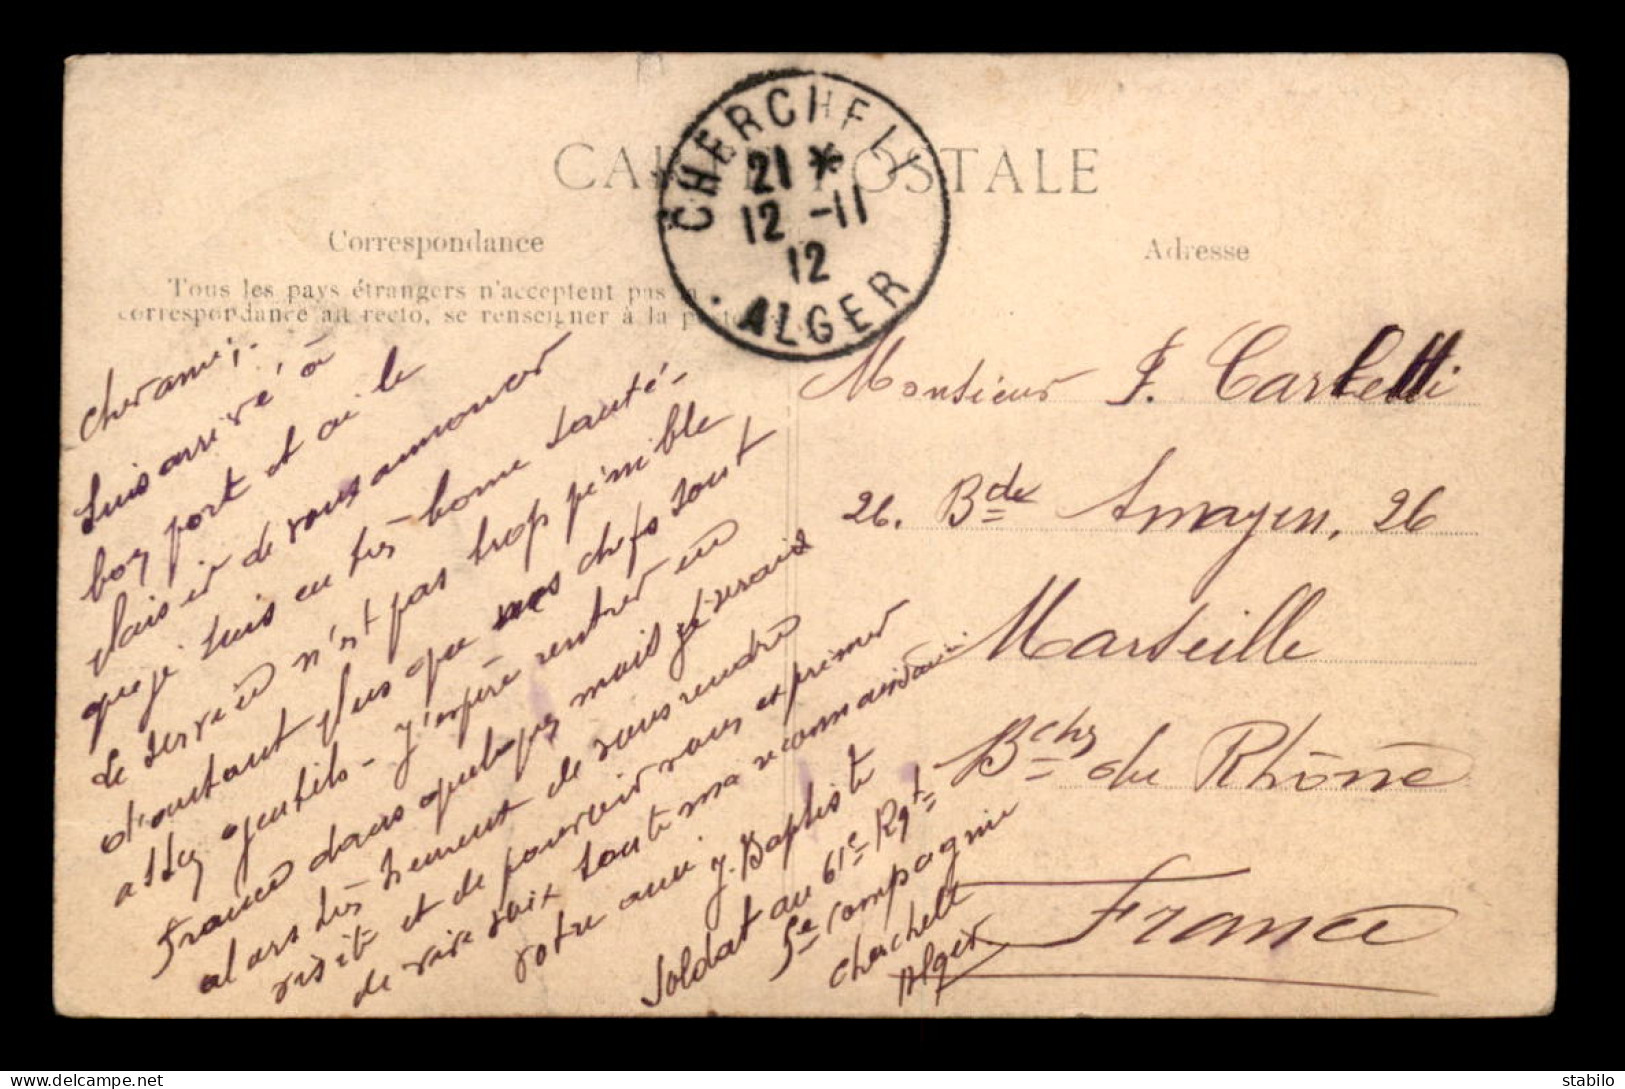 CARTE POSTALE
CHERCHELL
21 *
12 -11
12
ALGER
Correspondance
Tous les pays étrangers n'acceptent pas la
correspondance au recto, se renseigner à la poste
Adresse
Cher ami,
Suis arrivé à
bon port et ai le
plaisir de vous annoncer
que je suis en très bonne santé-
Le service n'est pas trop pénible
d'autant plus que nos chefs sont
assez gentils - J'espère rentrer en
France dans quelques mois je serais
alors très heureux de vous rendre
visite et de pouvoir vous exprimer
de vive voix toute ma
votre ami J. Baptiste
Soldat au 61e Rgt
5e compagnie
Cherchell
Alger
Monsieur F. Carletti
26. Bde 26
Marseille
Bches du Rhône
France
delcampe.net
stabilo